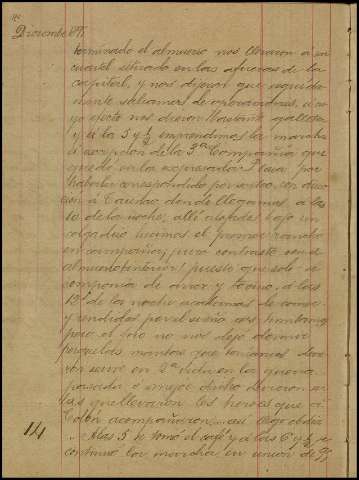 Diciembre 87.
terminado el almuerzo nos llevaron a un
cuartel situado en las afueras de la
capital, y nos dijeron que seguida
mente saldriamos de operaciones, a cu
yo efecto nos dieron bastante galleta
y a la 5 y ½ emprendimos la marcha
á excepción de la 3ª Compañia que
quedó en la expresada Plaza por
haberla correspondido por sorteo, con direc
cion á donde llegamos á las
10 de la noche, allí metidos bajo un
colgadizo hicimos el primer rancho
en campaña, pero contraste con el
almuerzo anterior! puesto que solo se
componia de arroz y tocino, á las
12 de la noche acabamos de comer
y rendidos por el sueño nos tumbamos
pero el frio no nos dejó dormir
porque las mantas que teniamos
ron servir en 2ª vida en la guerra
pasada ó mejor dicho debieron ser
las que llevaron los heroes que á
Colón acompañaron
A las 5 se tomó el café y á las 6 y ½ se
continuo la marcha en union de
14